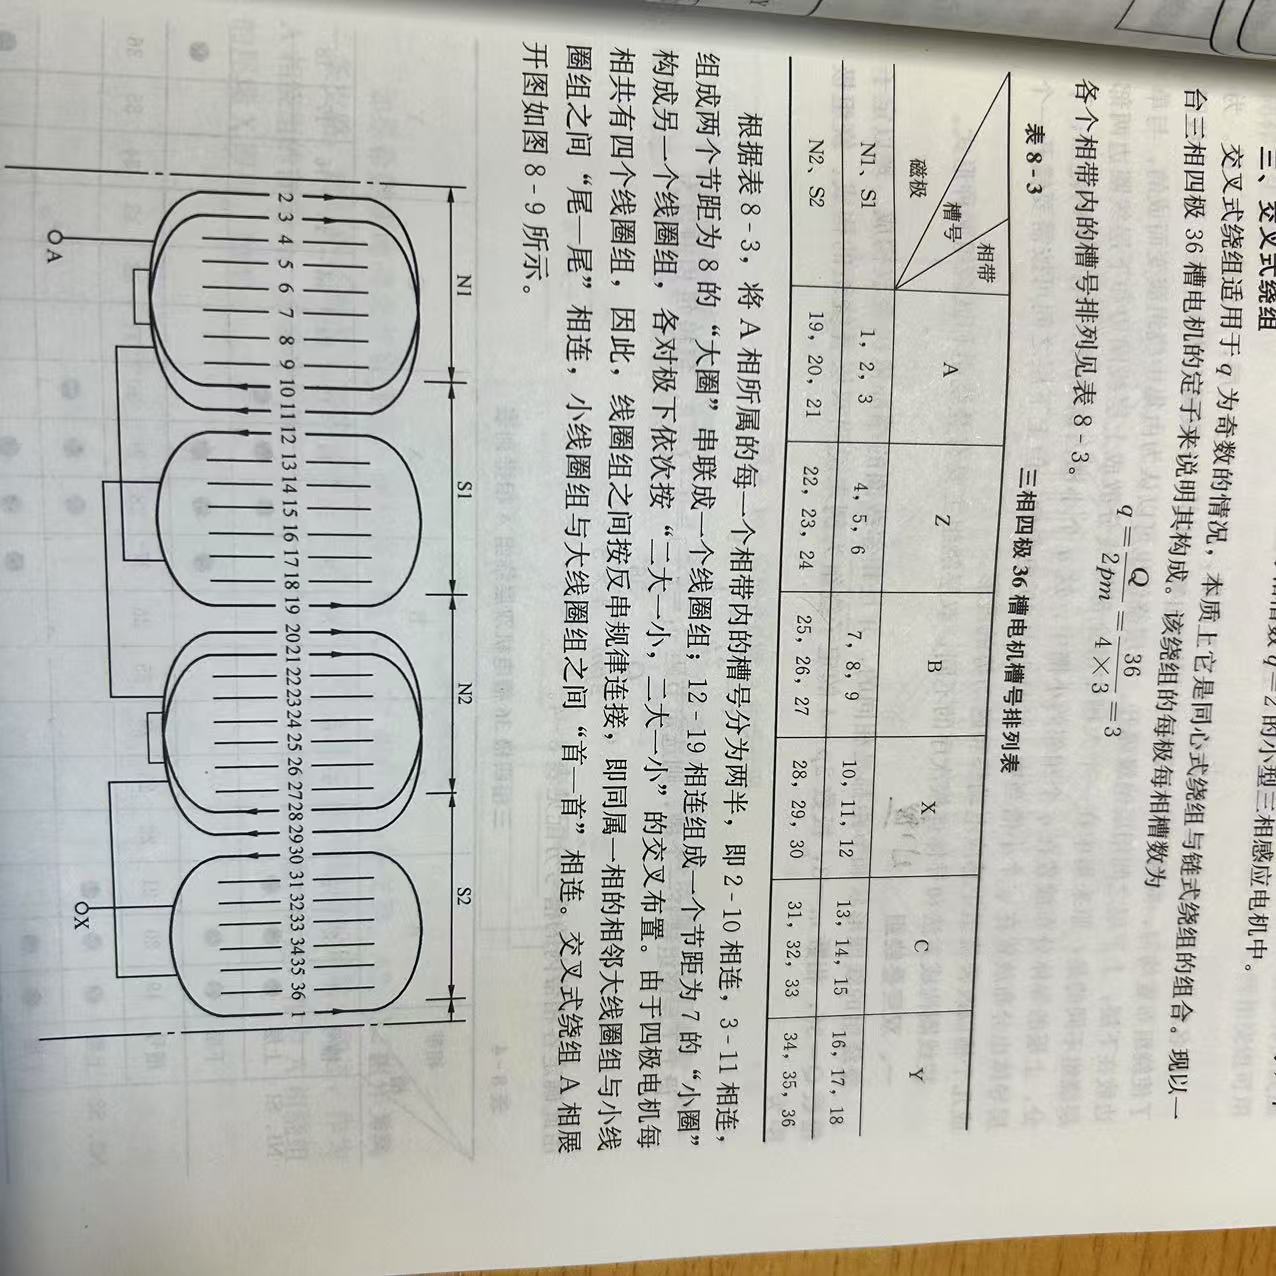 三、交叉式绕组
交叉式绕组适用于 q 为奇数的情况，本质上它是同心式绕组与链式绕组的组合。现以一
台三相四极 36 槽电机的定子来说明其构成。该绕组的每极每相槽数为
q = Q/2pm = 36/4×3 = 3
各个相带内的槽号排列见表 8-3。
表 8-3 三相四极 36 槽电机槽号排列表
相带 槽号 磁极 A Z B X C Y
N1、S1 1，2，3 4，5，6 7，8，9 10，11，12 13，14，15 16，17，18
N2、S2 19，20，21 22，23，24 25，26，27 28，29，30 31，32，33 34，35，36
根据表 8-3，将 A 相所属的每一个相带内的槽号分为两半，即 2-10 相连，3-11 相连，
组成两个节距为 8 的“大圈”串联成一个线圈组；12-19 相连组成一个节距为 7 的“小圈”
构成另一个线圈组，各对极下依次按“二大一小，二大一小”的交叉布置。由于四极电机每
相共有四个线圈组，因此，线圈组之间按反串规律连接，即同属一相的相邻大线圈组与小线
圈组之间“尾—尾”相连，小线圈组与大线圈组之间“首—首”相连。交叉式绕组 A 相展
开图如图 8-9 所示。
N1 S1 N2 S2
2 3 4 5 6 7 8 9 10 11 12 13 14 15 16 17 18 19 20 21 22 23 24 25 26 27 28 29 30 31 32 33 34 35 36 1
A X